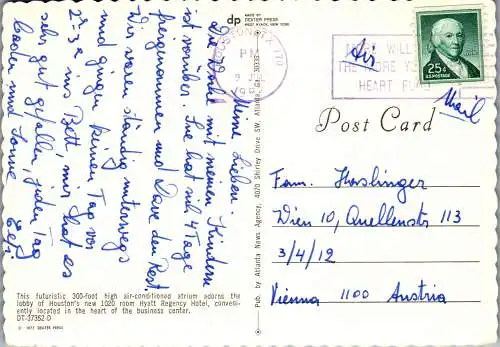 Meine Lieben!
Die Woche mit meinen Kindern
ist vorüber. Eve hat sich 4 Tage
freigenommen und Dave den Rest.
Wir waren ständig unterwegs
und gingen keinen Tag vor
2-3h ins Bett, mir hat es
sehr gut gefallen, jeden Tag
baden und Sonne
dp
MADE BY
DEXTER PRESS
WEST NYACK, NEW YORK
HOUSTON
PM
9 JUL
THE MORE YOU
HEART FUND
25¢
U.S. POSTAGE
Air
Mail
Post Card
Pub. by Atlanta News Agency, 4020 Shirley Drive SW, Atlanta, Ga. 30333
Fam. Haslinger
Wien 10, Quellenstr 113
3/4/12
Vienna 1100 Austria
This futuristic 300-foot high air-conditioned atrium adorns the
lobby of Houston's new 1020 room Hyatt Regency Hotel, conveni-
ently located in the heart of the business center.
DT-37352-D
© 1972 DEXTER PRESS